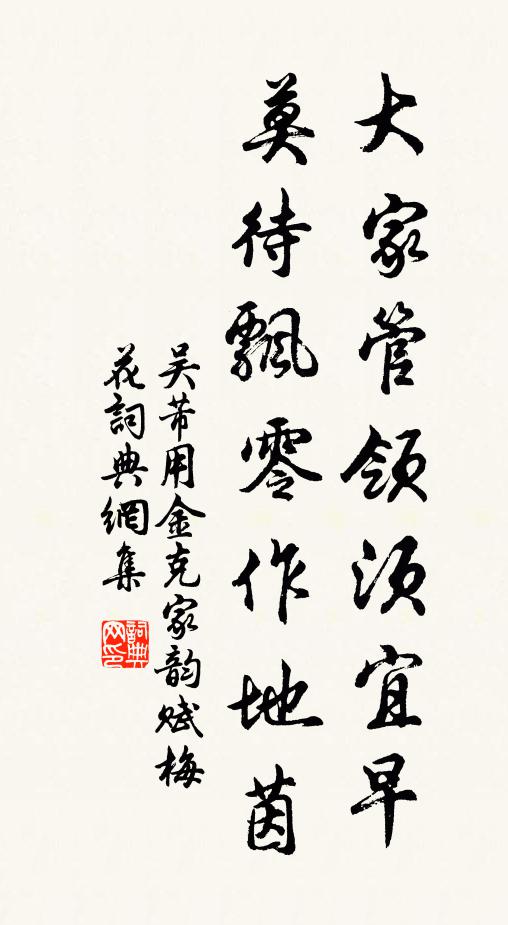 大家管領須宜早
莫待飄零作地茵
吴芾用金克家韵赋梅
花詞典網集
詞典
网印